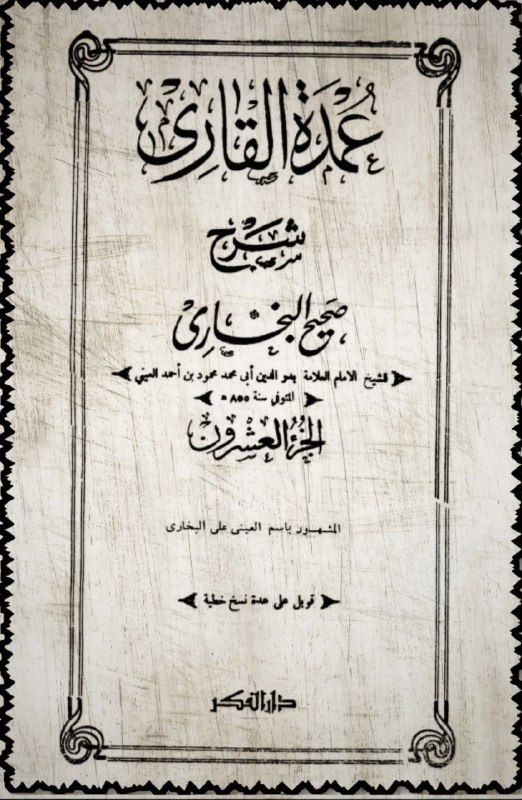 عُمْدَةُ القَارِئ
شَرْح
صَحِيح البُخَارِي
للشيخ الامام العلامة بدر الدين أبي محمد محمود بن أحمد العيني
المتوفى سنة ٨٥٥ ه
الجُزْءُ العِشْرُون
المشهور باسم العينى على البخارى
قوبل على عدة نسخ خطية
دار الفكر